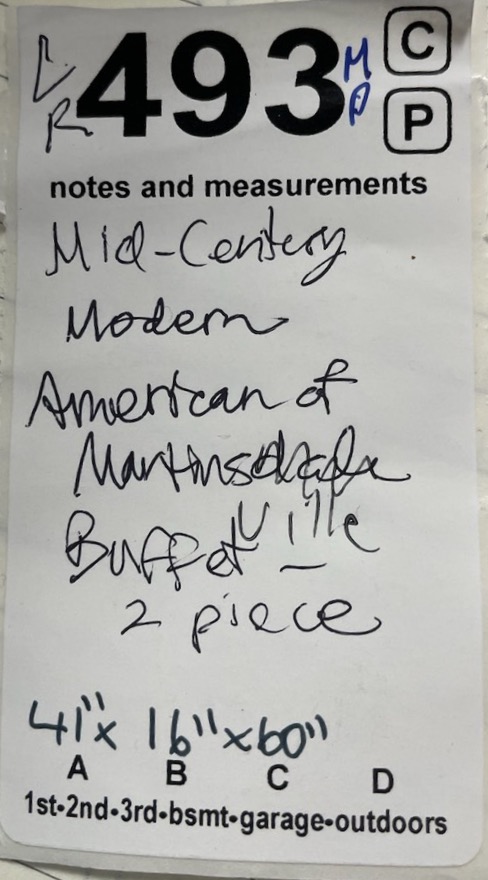 LR 493 MP C P
notes and measurements
Mid-Century
Modern
American of
Martins
ville
Buffet -
2 piece
41"x 16"x60"
A B C D
1st•2nd•3rd•bsmt•garage•outdoors